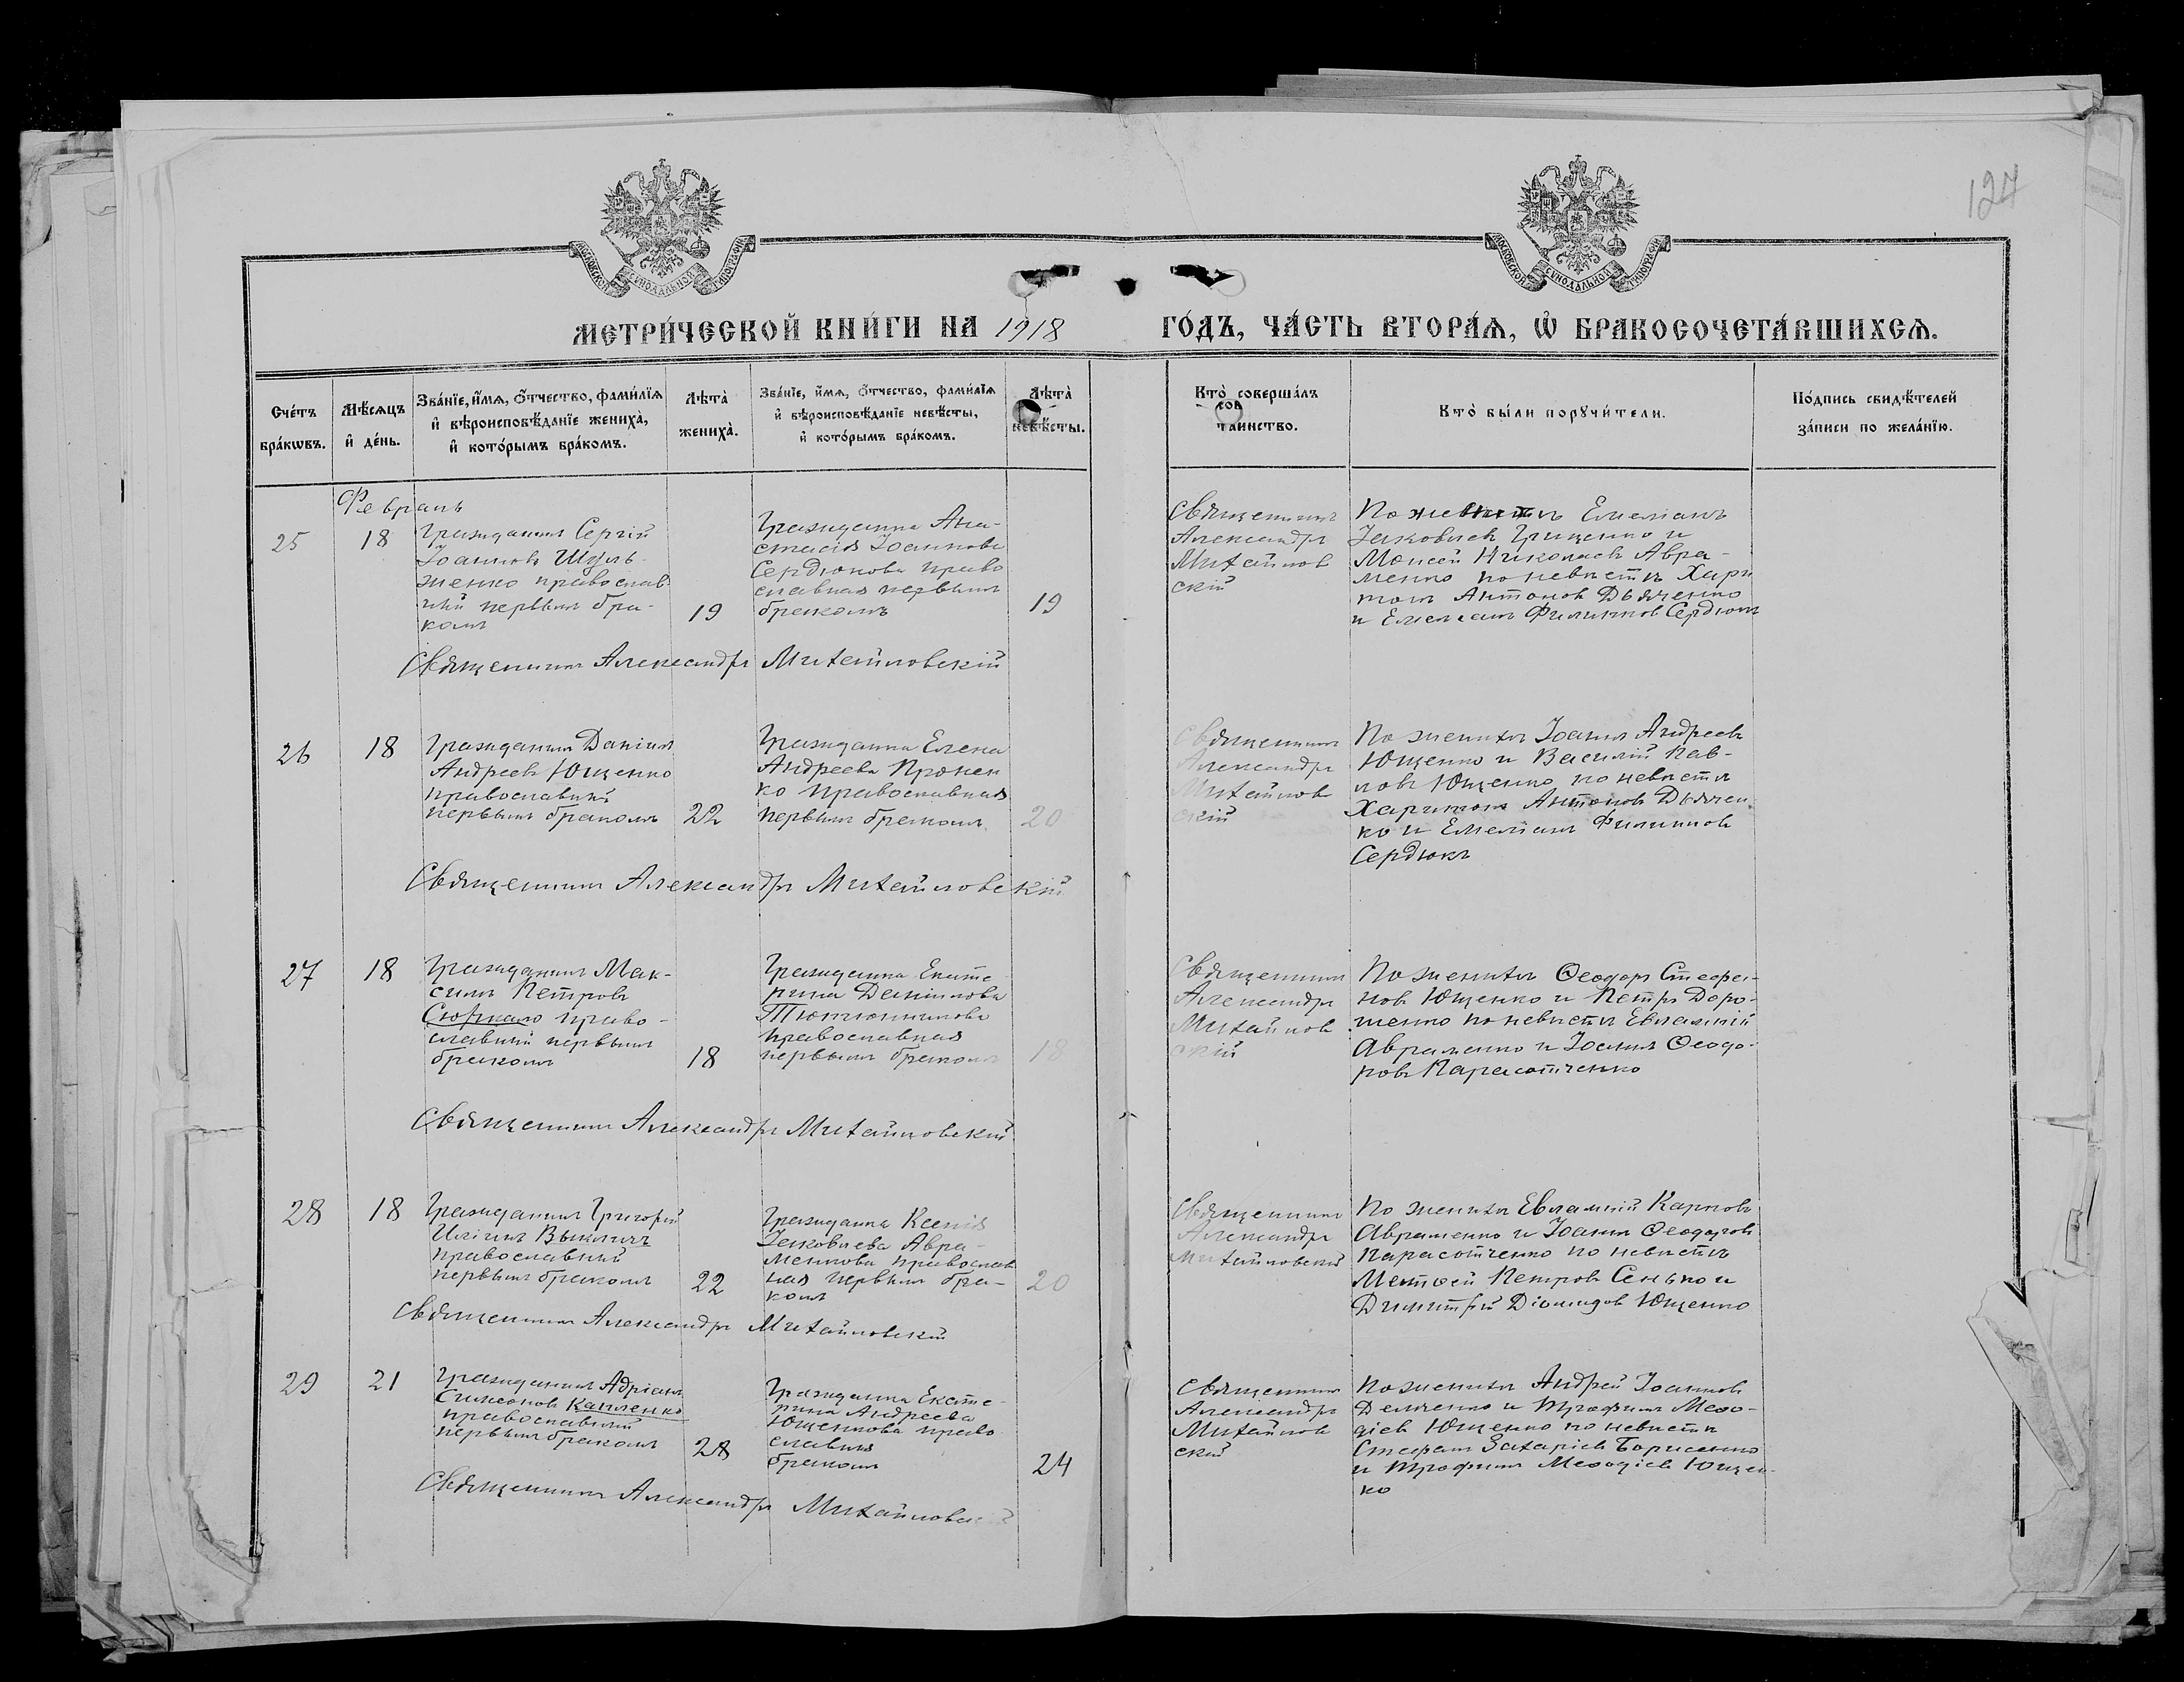 124
МОСКОВСКОЙ СѴНОДАЛЬНОЙ ТИПОГРАФІИ
МОСКОВСКОЙ СѴНОДАЛЬНОЙ ТИПОГРАФІИ
МЕТРИ́ЧЕСКОЙ КНИ́ГИ НА 1918 ГО́ДЪ, ЧА́СТЬ ВТОРА́Ѧ, Ѡ҆ БРАКОСОЧЕТА́ВШИХСѦ.
Сче́тъ
бра́кѡвъ.
Мѣ́сѧцъ
и҆ де́нь.
Зва́нїе, и҆́мѧ, ѻ҆́тчество, фами́лїѧ
и҆ вѣроисповѣ́данїе жениха̀,
и҆ кото́рымъ бра́комъ.
Лѣ́та
жениха̀.
Зва́нїе, и҆́мѧ, ѻ҆́тчество, фами́лїѧ
и҆ вѣроисповѣ́данїе невѣ́сты,
и҆ кото́рымъ бра́комъ.
Лѣ́та
невѣ́сты.
Кто̀ соверша́лъ
та́инство.
Кто̀ бы́ли порꙋчи́тели.
По́дпись свидѣ́телей
за́писи по жела́нїю.
Февраль
25
18
Гражданинъ Сергій
Іоанновъ Шуль-
женко православ-
ный первымъ бра-
комъ
19
Гражданка Ана-
стасія Іоаннова
Сердюкова право
славная первымъ
бракомъ
19
Священникъ
Александръ
Михайлов
скій
По женихѣ Емеліанъ
Іаковлевъ Гриценко и
Моисей Николаевъ Авра-
менко по невѣстѣ Хари
тонъ Антоновъ Дьяченко
и Емеліанъ Филипповъ Сердюкъ
Священникъ Александръ Михайловскій
26
18
Гражданинъ Даніилъ
Андреевъ Ющенко
православный
первымъ бракомъ
22
Гражданка Елена
Андреева Пронен
ко православная
первымъ бракомъ
20
Священникъ
Александръ
Михайлов
скій
По женихѣ Іоаннъ Андреевъ
Ющенко и Василій Пав-
ловъ Ющенко по невѣстѣ
Харитонъ Антоновъ Дьячен
ко и Емеліанъ Филипповъ
Сердюкъ
Священникъ Александръ Михайловскій
27
18
Гражданинъ Мак-
симъ Петровъ
право-
славный первымъ
бракомъ
18
Гражданка Екате
рина Даніилова
Тютюнникова
православная
первымъ бракомъ
18
Священникъ
Александръ
Михайлов
скій
По женихѣ Ѳеодоръ Стефа-
новъ Ющенко и Петръ Доро-
шенко по невѣстѣ Евлампій
Авраменко и Іоаннъ Ѳеодо-
ровъ Парасотченко
Священникъ Александръ Михайловскій
28
18
Гражданинъ Григорій
Иліинъ
православный
первымъ бракомъ
22
Гражданка Ксенія
Іаковлева Авра-
менкова православ
ная первымъ бра-
комъ
20
Священникъ
Александръ
Михайловскій
По женихѣ Евлампій Карповъ
Авраменко и Іоаннъ Ѳеодоровъ
Парасотченко по невѣстѣ
Матѳей Петровъ Сенько и
Димитрій Діомидовъ Ющенко
Священникъ Александръ Михайловскій
29
21
Гражданинъ Адріанъ
Симеоновъ Капленко
православный
первымъ бракомъ
28
Гражданка Екате-
рина Андреева
Ющенкова право
славная
бракомъ
24
Священникъ
Александръ
Михайлов
скій
По женихѣ Андрей Іоанновъ
Демченко и Трофимъ Меѳо-
діевъ Ющенко по невѣстѣ
Стефанъ Захаріевъ Борисенко
и Трофимъ Меѳодіевъ Ющен-
ко
Священникъ Александръ Михайловскій